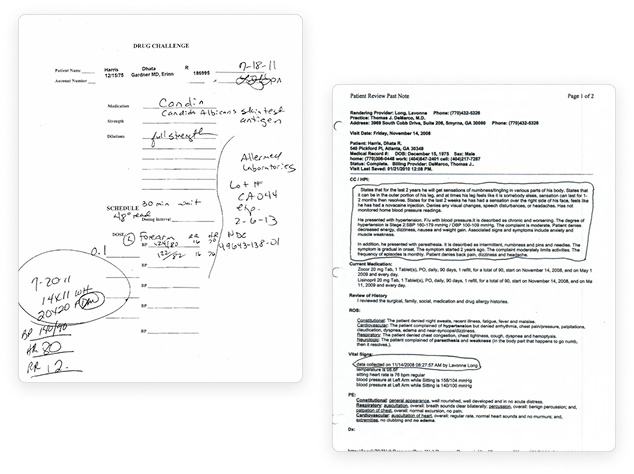 DRUG CHALLENGE
Patient Name Harris Dhata R 7-18-11
12/15/75 Gardner MD, Erinn 186995
Account Number
Medication Candin
Candida Albicans skin test
Strength antigen
Dilutions full strength
Allermed
Laboratories
Lot #
CA044
exp.
2-6-13
NDC
49643-138-01
SCHEDULE 30 min wait
48° read
Dosing Interval
DOSE Forearm RR HR
0.1 BP 124/80 16 76
BP 122/82 16 76
BP
BP
BP
7-20 11
14x11 WH
20x20
BP 140/90
HR 80
RR 12
Patient Review Past Note Page 1 of 2
Rendering Provider: Long, Lavonne Phone: (770)432-5326
Practice: Thomas J. DeMarco, M.D.
Address: 3969 South Cobb Drive, Suite 206, Smyrna, GA 30080 Phone: (770)432-5326
Visit Date: Friday, November 14, 2008
Patient: Harris, Dhata R.
540 Pickford Pl, Atlanta, GA 30349
Medical Record #: DOB: December 15, 1975 Sex: Male
home: (770)306-0448 work: (404)647-2401 cell: (404)217-7267
Status: Complete. Billing Provider: DeMarco, Thomas J..
Visit Last Saved: 01/21/2010 12:08 PM.
CC / HPI:
States that for the last 2 years he will get sensations of numbness/tingling in various parts of his body. States that
it can be in the outer portion of his leg, and at times his leg feels like it is somebody elses, sensation can last for 1-
2 months then resolves. States for the last 2 weeks he has had a sensation over the right side of his face, feels like
he has had a novocaine injection. Denies any visual changes, speech disturbances, or headaches. Has not
monitored home blood pressure readings.
He presented with hypertension. F/u with blood pressure. It is described as chronic and worsening. The degree of
hypertension is Stage 2 SBP 160-179 mmHg / DBP 100-109 mmHg. The complaint is moderate. Patient denies
decreased energy, dizziness, nausea and weight gain. Associated signs and symptoms include anxiety and
muscle weakness.
In addition, he presented with paresthesia. It is described as intermittent, numbness and pins and needles. The
symptom is gradual in onset. The symptom started 2 years ago. The complaint moderately limits activities. The
frequency of episodes is monthly. Patient denies back pain, dizziness and headache.
Current Medication:
Zocor 20 mg Tab, 1 Tablet(s), PO, daily, 90 days, 1 refill, for a total of 90, start on November 14, 2008, end on May 1
2009 and every day.
Lisinopril 20 mg Tab, 1 Tablet(s), PO, daily, 90 days, 1 refill, for a total of 90, start on November 14, 2008, end on Ma
11, 2009 and every day.
Review of History
I reviewed the surgical, family, social, medication and drug allergy histories.
ROS:
Constitutional: The patient denied night sweats, recent illness, fatigue, fever and malaise.
Cardiovascular: The patient complained of hypertension but denied arrhythmia, chest pain/pressure, palpitations,
claudication, dyspnea, edema and near-syncope/dizziness.
Respiratory: The patient denied chest congestion, chest tightness, cough, dyspnea and hemoptysis.
Neurologic: The patient complained of paresthesia and weakness (in the body part that happens to go numb,
then it resolves.).
Vital Signs:
data collected on 11/14/2008 08:27:57 AM by Lavonne Long
temperature is 98.6F
sitting heart rate is 76 bpm regular
blood pressure at Left Arm while Sitting is 158/104 mmHg
blood pressure at Left Arm while Sitting is 140/100 mmHg
PE:
Constitutional: general appearance, well nourished, well developed and in no acute distress.
Respiratory: auscultation, overall: breath sounds clear bilaterally; percussion, overall: benign percussion; and,
palpation of chest, overall: normal excursion, no pain.
Cardiovascular: auscultation of heart, overall: regular rate, normal heart sounds and no murmurs; and,
extremities, no clubbing and no edema.
Dx: